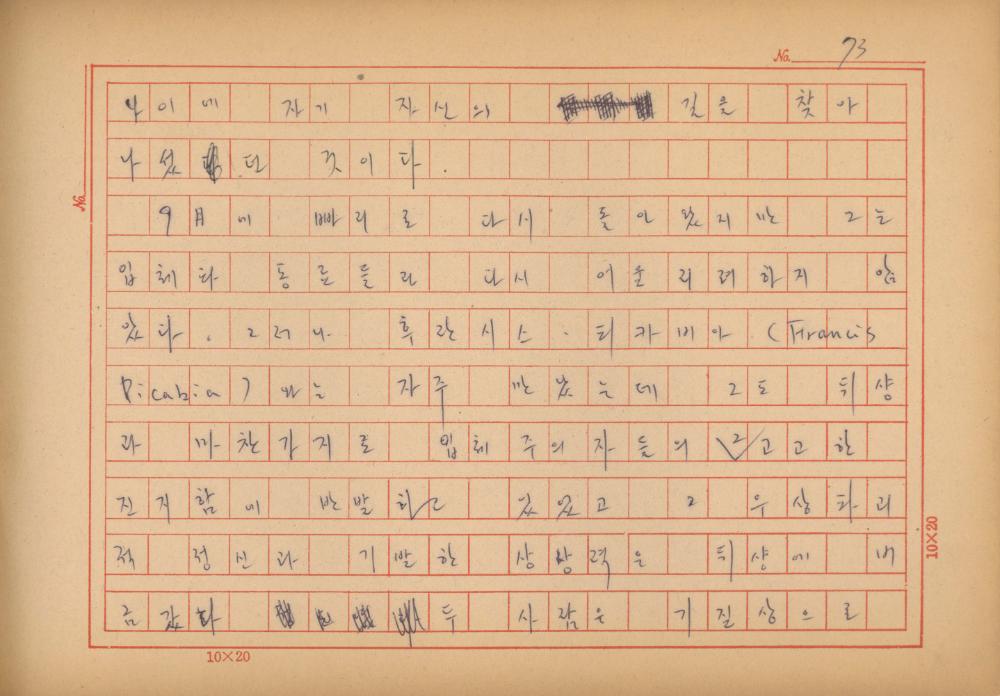 No. 73
나이에 자기 자신의 길을 찾아
나섰던 것이다.
9月에 빠리로 다시 돌아왔지만 그는
입체파 동료들과 다시 어울리려하지 않
았다. 그러나 후란시스·피카비아 (Francis
Picabia) 와는 자주 만났는데 그도 뒤샹
과 마찬가지로 입체주의자들의 그 고고한
진지함에 반발하고 있었고 그 우상파괴
적 정신과 기발한 상상력은 뒤샹에 버
금갔다 두 사람은 기질상으로
No.
10×20
10×20